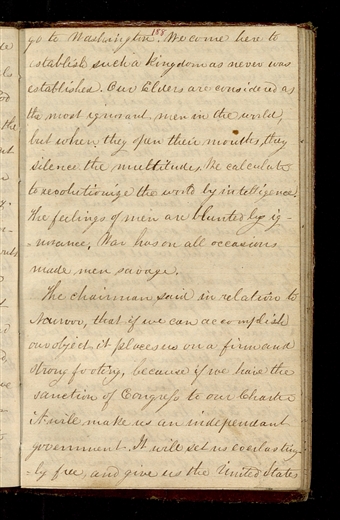 188
go to Washington. We come here to
establish such a kingdom as never was
established. Our Elders are considered as
the most ignorant men in the world,
but when they open their mouths, they
silence the multitudes. We calculate
to revolutionize the world by intelligence.
The feelings of men are blunted by ig-
-norance, War has on all occasions
made men savage.
The chairman said in relation to
Nauvoo, that if we can accomplish
our object it places us on a firm and
strong footing, because if we have the
sanction of Congress to our Charter
it will make us an independant
government. It will set us everlasting-
-ly free, and give us the United States